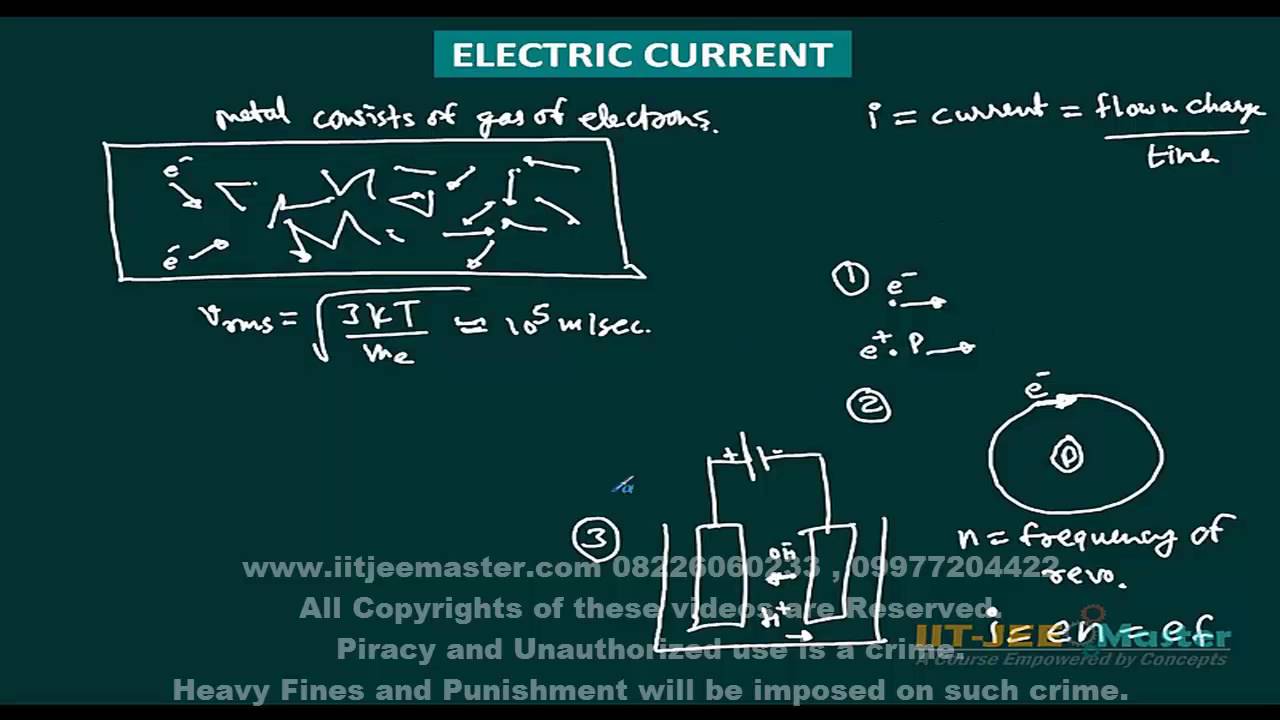 ELECTRIC CURRENT
metal consists of gas of electrons.
i = current = flow n charge / time
e⁻
e⁻
vrms = √3KT/me ≃ 10⁵ m/sec.
① e⁻
e⁺ P
②
e⁻
P
+ -
③
OH⁻
H⁺
n = frequency of
revo.
i = en = ef
www.iitjeemaster.com 08226060233 , 09977204422
All Copyrights of these videos are Reserved.
IIT-JEE Master
Piracy and Unauthorized use is a crime.
A Course Empowered by Concepts
Heavy Fines and Punishment will be imposed on such crime.